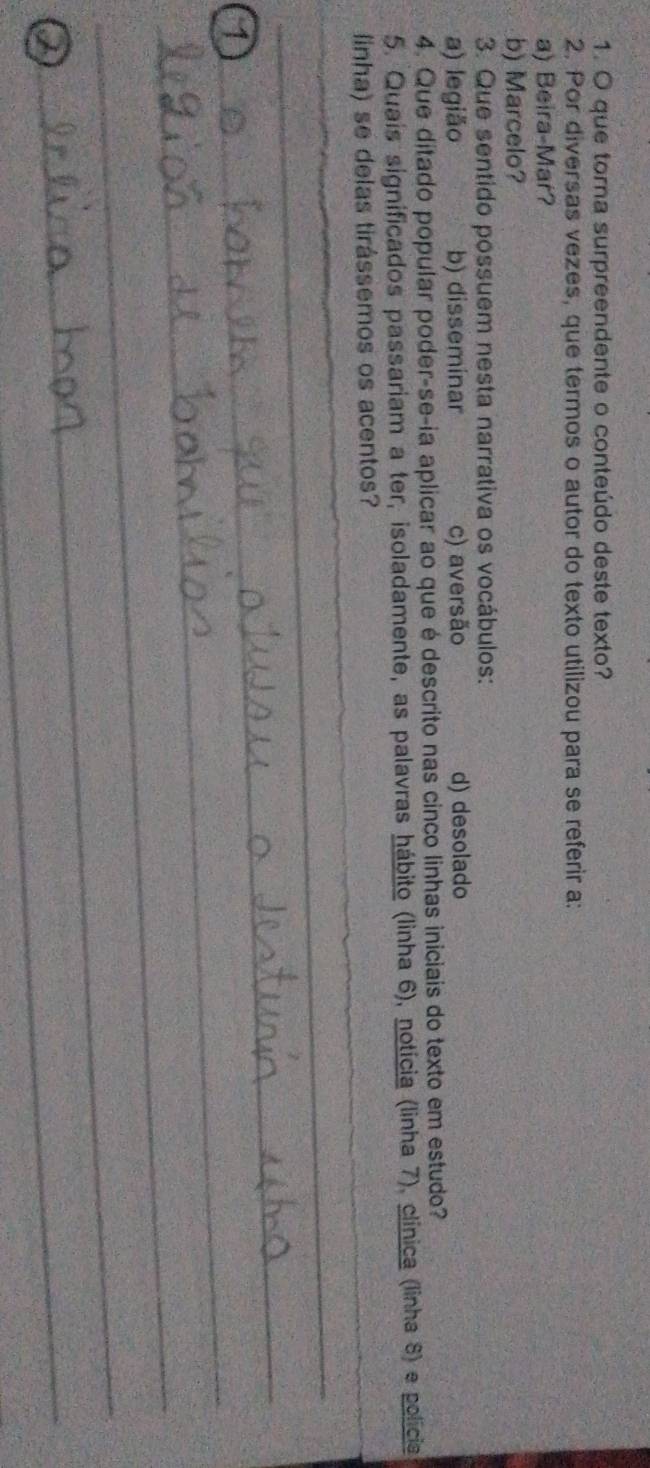 1. O que torna surpreendente o conteúdo deste texto?
2. Por diversas vezes, que termos o autor do texto utilizou para se referir a:
a) Beira-Mar?
b) Marcelo?
3. Que sentido possuem nesta narrativa os vocábulos:
a) legião b) disseminar c) aversão d) desolado
4. Que ditado popular poder-se-ia aplicar ao que é descrito nas cinco linhas iniciais do texto em estudo?
5. Quais significados passariam a ter, isoladamente, as palavras hábito (linha 6), notícia (linha 7), clínica (linha 8) e polícia
linha) se delas tirássemos os acentos?
1 a que a
de
2